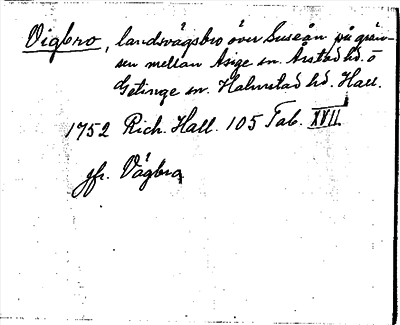 Vigbro, landsvägsbro över Suseån på grän-
sen mellan Asige sn. Årstad hd. o
Getinge sn. Halmstad hd. Hall.
1752 Rich. Hall. 105 Tab. XVII
jfr. Vågbro